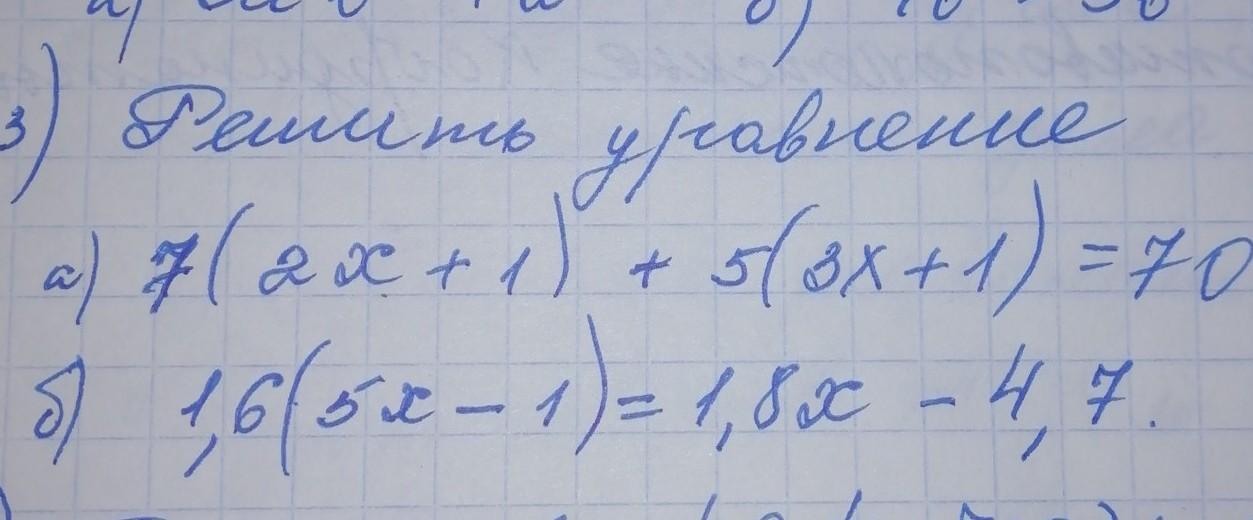 3) Решить уравнение
а) 7(2x + 1) + 5(3x + 1) = 70
б) 1,6(5x - 1) = 1,8x - 4,7.